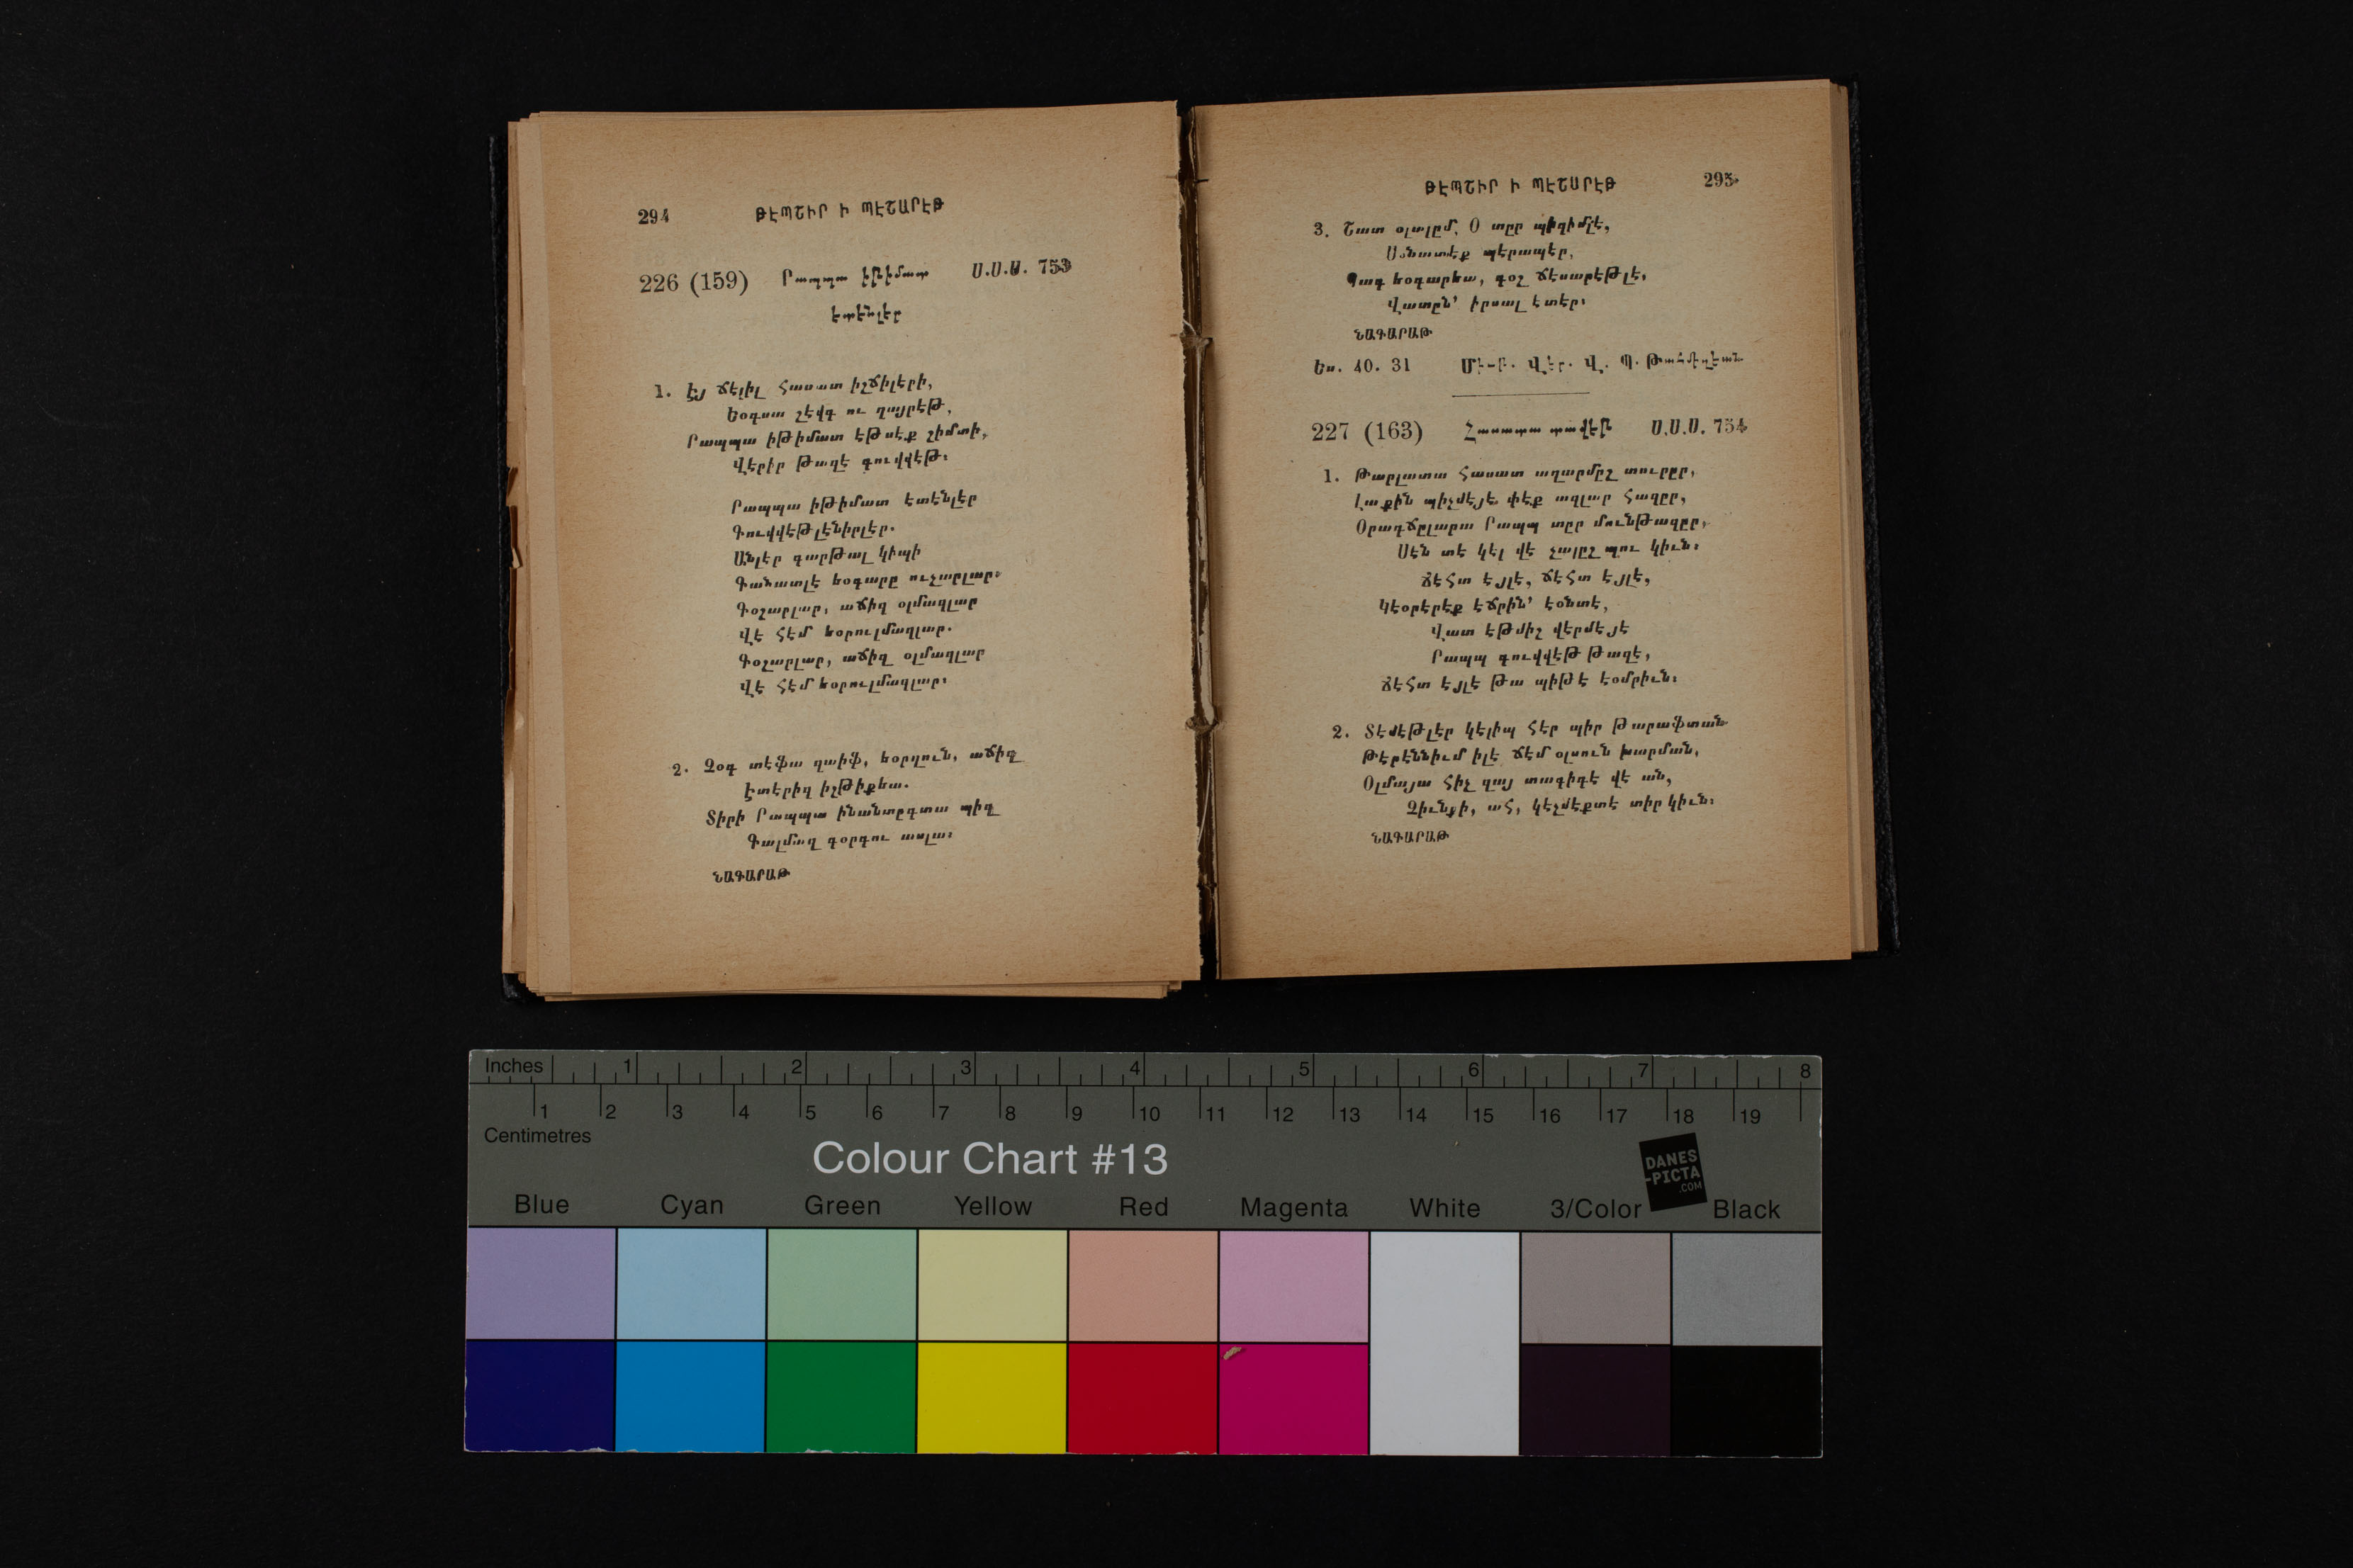 294 ԹԷՊՇԻՐ Ի ՊԷՇԱՐԷԹ
226 (159) Րապպա իթիմատ Ս.Ս.Ս. 753
էտէնլէր
1. Էյ ճէլիլ հասատ իշճիլերի,
Եօգսա շէվգ ու ղայրէթ,
Րապպա իթիմատ էթսէք շիմտի,
Վէրիր թազէ գուվվէթ։
Րապպա իթիմատ էտէնլէր
Գուվվէթլէնիրլէր.
Անլէր գարթալ կիպի
Գանատլէ եօգարը ուչարլար։
Գօշարլար, աճիզ օլմազլար
Վէ հէմ եօրուլմազլար.
Գօշարլար, աճիզ օլմազլար
Վէ հէմ եօրուլմազլար։
2. Չօգ տէֆա զաիֆ, եօրղուն, աճիզ
Էտէրիզ իշթիքեա.
Տիրի Րապպա ինանտըգտա պիզ
Գալմազ գօրգու ասլա։
ՆԱԳԱՐԱԹ
ԹԷՊՇԻՐ Ի ՊԷՇԱՐԷԹ 295
3. Շատ օլալըմ, Օ տըր պիզիմլէ,
Սօնատէք պէրապէր,
Պագ եօգարեա, գօշ ճէսարէթլէ,
Վատըն՚ իրսալ էտէր։
ՆԱԳԱՐԱԹ
Ես. 40. 31 Վեր. Վ. Պ.
227 (163) Հասատա տավէթ Ս.Ս.Ս. 754
1. Թարլատա հասատ աղարմըշ տուրըր,
Լաքին պիչմէյէ փէք ազլար հազըր,
Օրագճըլարա Րապպ տըր մունթազըր,
Սէն տէ կէլ վէ չալըշ պու կիւն։
Ճէհտ էյլէ, ճէհտ էյլէ,
Կէօրէրէք էճրին՚ էօնտէ,
Վատ էթմիշ վէրմէյէ
Րապպ գուվվէթ թազէ,
Ճէհտ էյլէ թա պիթէ էօմրիւն։
2. Տէմէթլէր կէլիպ հէր պիր թարաֆտան
Թէրէննիւմ իլէ ճէմ օլսուն խարման,
Օլմայա հիչ զայ տագիգէ վէ ան,
Զիւնքի, ահ, կէչմէքտէ տիր կիւն։
ՆԱԳԱՐԱԹ
Inches 1 2 3 4 5 6 7 8
1 2 3 4 5 6 7 8 9 10 11 12 13 14 15 16 17 18 19
Centimetres
Colour Chart #13
DANES
-PICTA
.COM
Blue Cyan Green Yellow Red Magenta White 3/Color Black